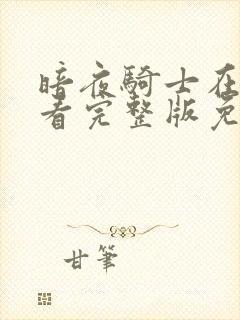 暗夜騎士在
看完整版免
甘筆